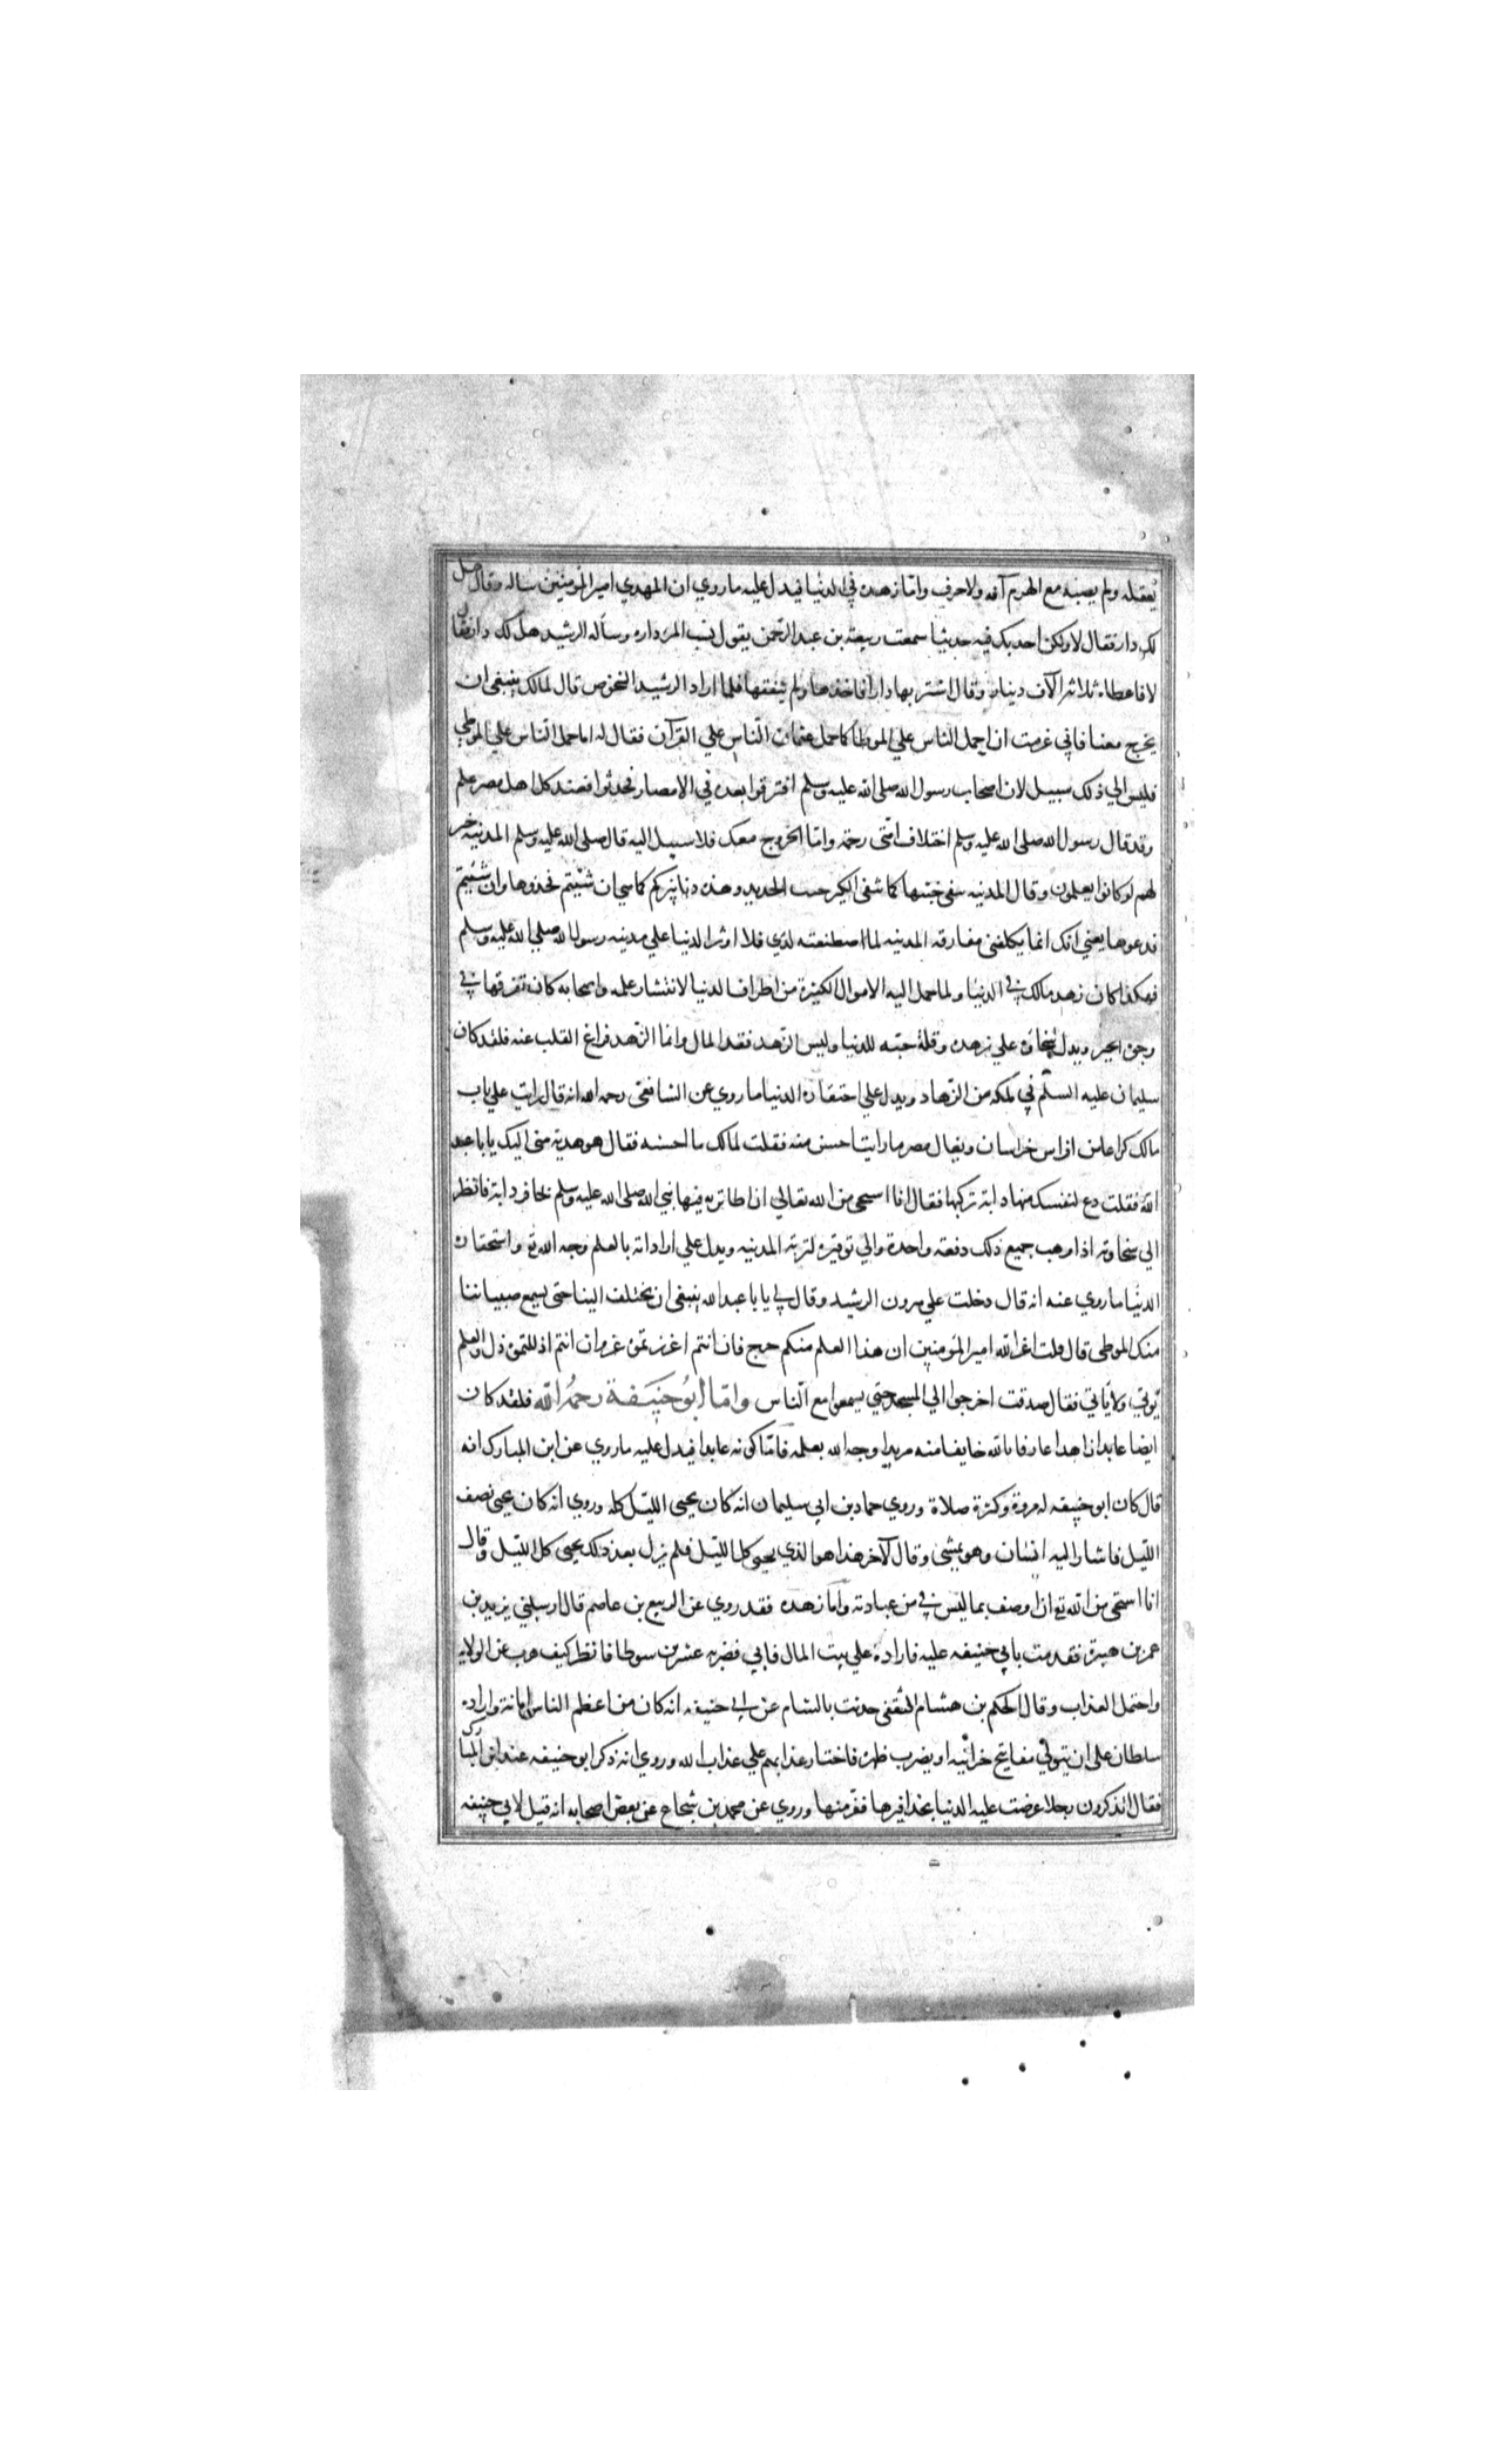 بعقله ولم يصبه مع الهرم آفه ولا حرف واما زهده في الدنيا فيدل عليه ما روي ان المهدي امير المؤمنين ساله وقال هل
لك دار فقال لا ولكن احدثك فيه حديثا سمعت ربيعة بن عبد الرحمن يقول نسب المرء داره وسأله الرشيد هل لك دار فقال
لا فاعطاه ثلاثة آلاف دينار وقال اشتر بها دارا فاخذها ولم ينفقها فلما اراد الرشيد الشخوص قال لمالك ينبغي ان
يخرج معنا فاني عزمت ان احمل الناس علي الموطأ كما حمل عثمان الناس علي القرآن فقال له اما حمل الناس علي الموطي
فليس الي ذلك سبيل لان اصحاب رسول الله صلى الله عليه وسلم افترقوا بعده في الامصار فحدثوا فعند كل اهل مصر علم
وقد قال رسول الله صلى الله عليه وسلم اختلاف امتى رحمة واما الخروج معك فلا سبيل اليه قال صلى الله عليه وسلم المدينه خير
لهم لو كانوا يعلمون وقال المدينه تنفي خبثها كما تنفي الكير خبث الحديد وهذه دنانيركم كما هي ان شئتم فخذوها وان شئتم
فدعوها يعني انك انما يكلفنى مفارقه المدينه لما اصطنعته لدي فلا اوثر الدنيا علي مدينه رسول الله صلي الله عليه وسلم
فهكذا كان زهد مالك في الدنيا ولما حمل اليه الاموال الكثيرة من اطراف الدنيا لانتشار علمه واصحابه كان تفرقها في
وجوه الخير ويدل سخاؤه علي زهده وقلة حبه للدنيا وليس الزهد فقد المال وانما الزهد فراغ القلب عنه فلقد كان
سليمان عليه السلم في ملكه من الزهاد ويدل علي احتقاره الدنيا ما روي عن الشافعى رحمه الله انه قال رايت علي باب
مالك كراعا من افراس خراسان وبغال مصر ما رايت احسن منه فقلت لمالك ما احسنه فقال هو هدية منى اليك يابا عبد
الله فقلت دع لنفسك منها دابة تركبها فقال انا استحي من الله تعالي ان اطا تربه فيها نبي الله صلى الله عليه وسلم بحافر دابة فانظر
الي سخاوته اذا وهب جميع ذلك دفعه واحدة والي توقيره لتربة المدينه ويدل علي ارادته بالعلم وجه الله تع واستحقاره
الدنيا ما روي عنه انه قال دخلت علي هرون الرشيد وقال لي يابا عبد الله ينبغي ان تختلف الينا حتى يسمع صبياننا
منك الموطى قال قلت اعز الله امير المؤمنين ان هذا العلم منكم خرج فان انتم اعززتموه عز وان انتم اذللتموه ذل والعلم
يؤتي ولا يأتي فقال صدقت اخرجوا الي المسجد حتي يسمعوا مع الناس واما ابو حنيفة رحمه الله فلقد كان
ايضا عابدا زاهدا عارفا بالله خايفا منه مريدا وجه الله بعلمه فاما كونه عابدا فيدل عليه ما روي عن ابن المبارك انه
قال كان ابو حنيفه له مروة وكثرة صلاة وروي حماد بن ابي سليمان انه كان يحيى الليل كله وروي انه كان يحيى نصف
الليل فاشار اليه انسان وهو يمشي وقال لآخر هذا هو الذي يحيى كل الليل فلم يزل بعد ذلك يحيى كل الليل وقال
انا استحي من الله تع ان اوصف بما ليس في من عبادته واما زهده فقد روي عن الربيع بن عاصم قال ارسلني يزيد بن
عمر بن هبيرة فقدمت بابي حنيفه عليه فاراده علي بيت المال فابي فضربه عشرين سوطا فانظر كيف هرب عن الولايه
واحتمل العذاب وقال الحكم بن هشام الثقفى حدثت بالشام عن ابي حنيفه انه كان من اعظم الناس امانة واراده
سلطان على ان يتولي مفاتيح خزائنه او يضرب ظهره فاختار عذابهم علي عذاب الله وروي انه ذكر ابو حنيفه عند ابن المبارك
فقال اتذكرون رجلا عرضت عليه الدنيا بحذافيرها ففر منها وروي عن محمد بن شجاع عن بعض اصحابه انه قيل لابي حنيفه